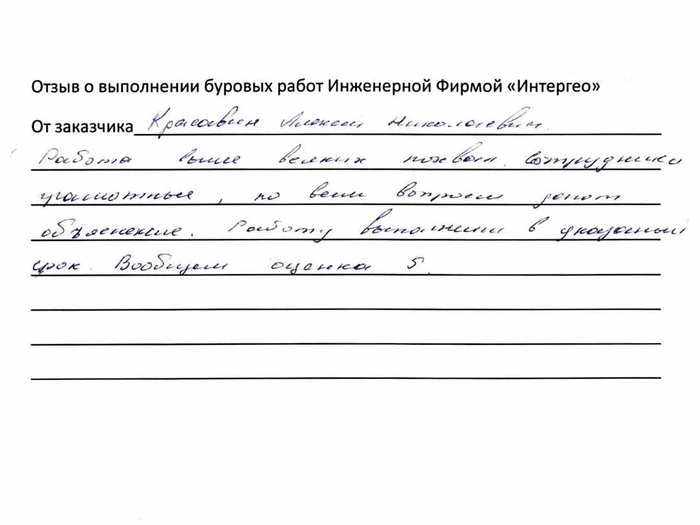 Отзыв о выполнении буровых работ Инженерной Фирмой «Интергео»
От заказчика Красавин Алексей Николаевич.
Работа выше всяких похвал. Сотрудники
грамотные, по всем вопросам дают
объяснение. Работу выполнили в указаный
срок. Вообщем оценка 5.